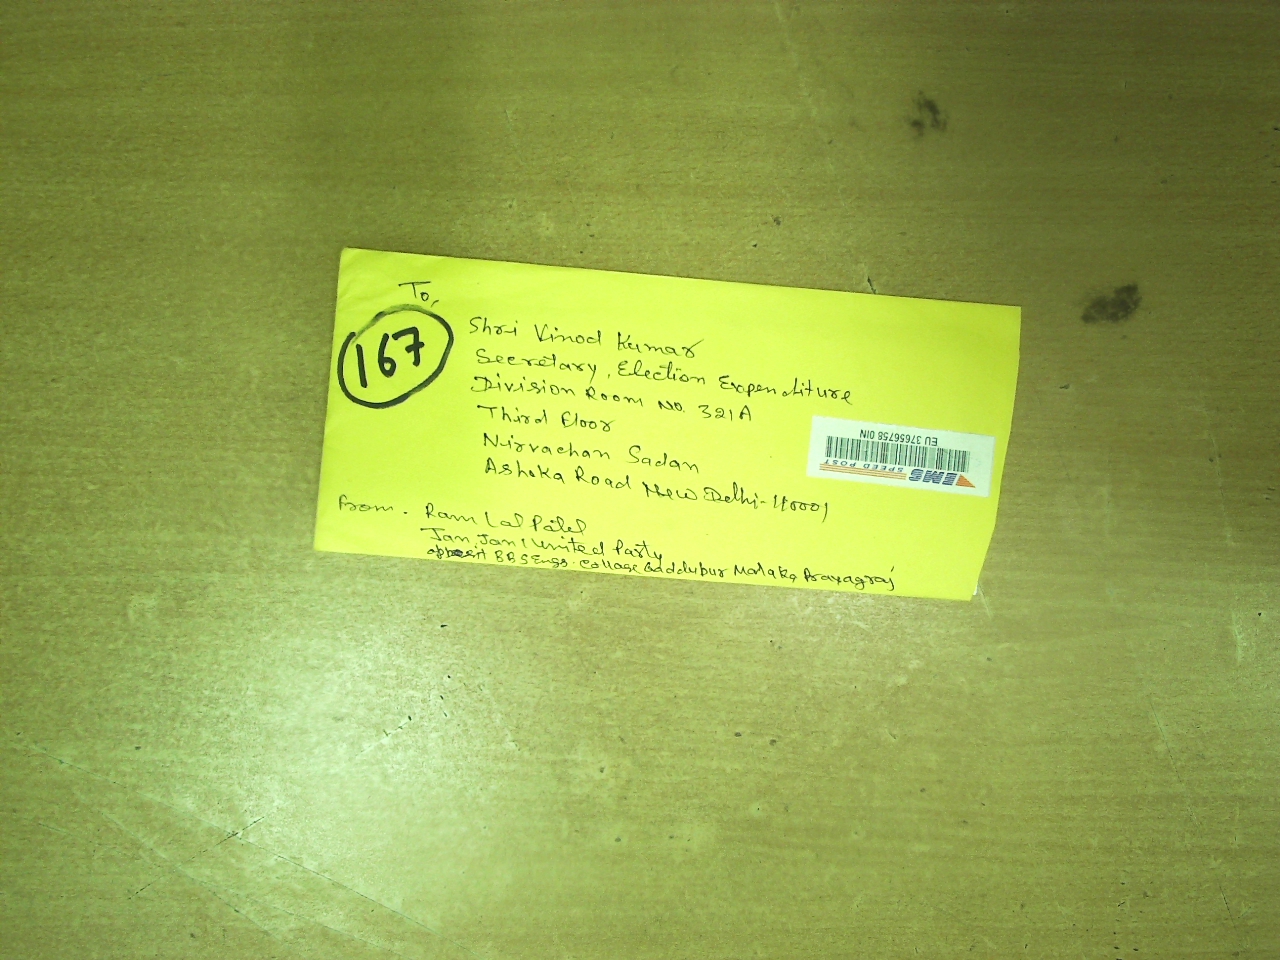 To,
167
Shri Vinod Kumar
Secretary, Election Expenditure
Division Room No. 321A
Third Floor
Nirvachan Sadan
Ashoka Road New Delhi-110001
EU 37656758 0IN
SPEED POST EMS
From. Ram Lal Patel
Jan Jan United Party
opposit BBS Engg. Collage Gaddupur Malaka Prayagraj